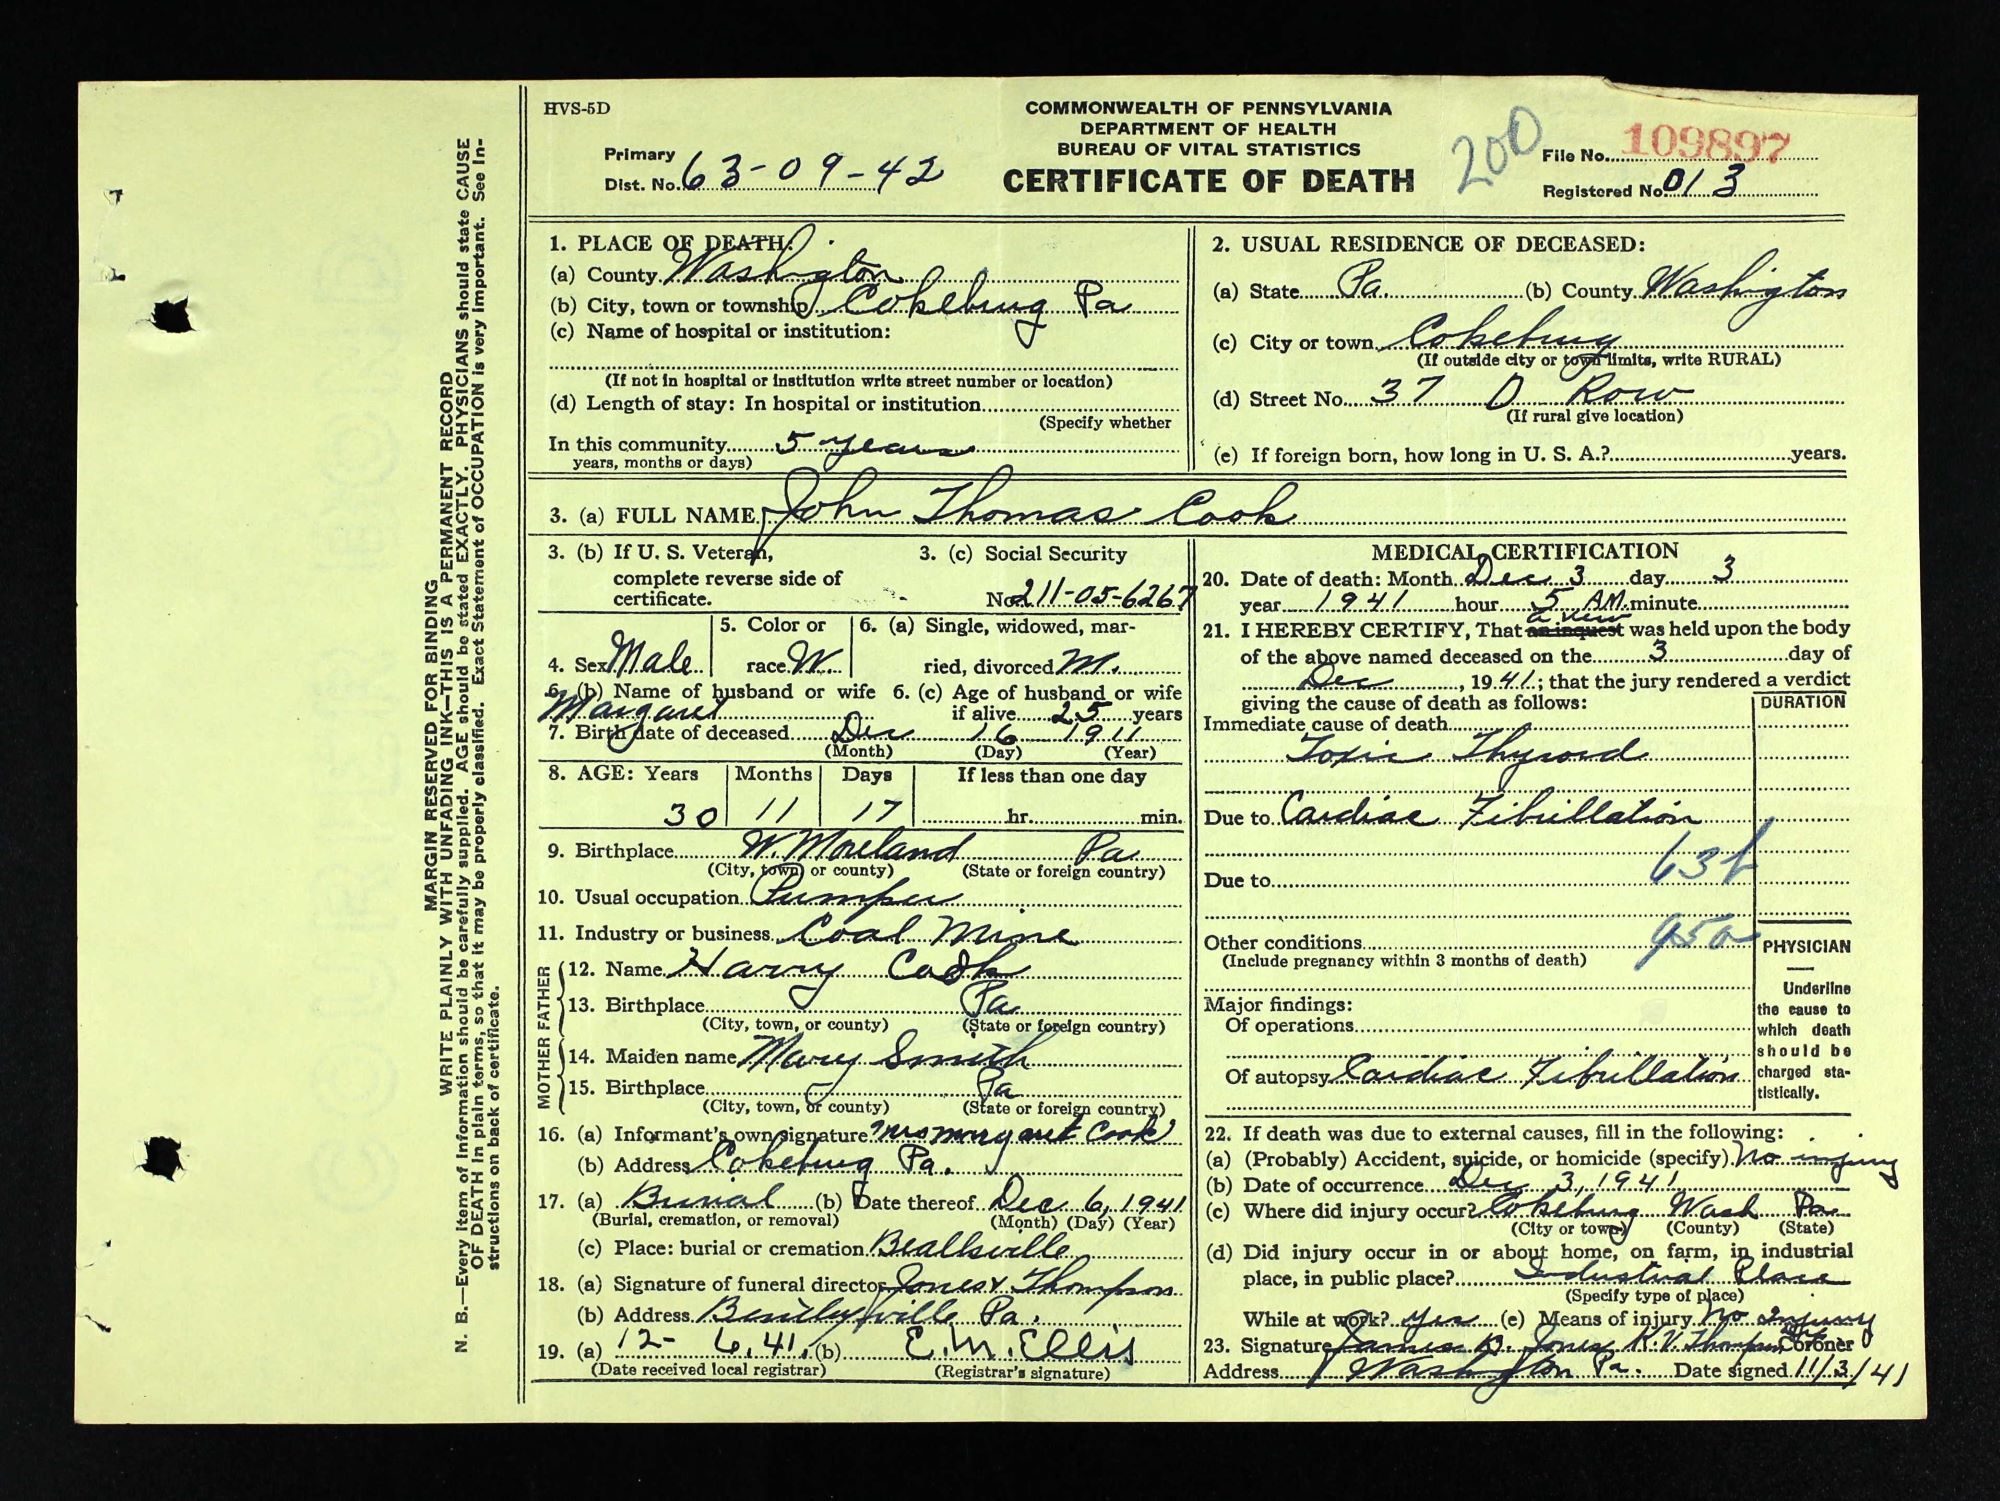 HVS-5D
COMMONWEALTH OF PENNSYLVANIA
DEPARTMENT OF HEALTH
BUREAU OF VITAL STATISTICS
CERTIFICATE OF DEATH
Primary
Dist. No. 63-09-42
200
File No. 109897
Registered No. 013
MARGIN RESERVED FOR BINDING
WRITE PLAINLY WITH UNFADING INK—THIS IS A PERMANENT RECORD
N. B.—Every item of information should be carefully supplied. AGE should be stated EXACTLY. PHYSICIANS should state CAUSE
OF DEATH in plain terms, so that it may be properly classified. Exact Statement of OCCUPATION is very important. See In-
structions on back of certificate.
1. PLACE OF DEATH:
(a) County Washington
(b) City, town or township Cokeburg Pa
(c) Name of hospital or institution:
(If not in hospital or institution write street number or location)
(d) Length of stay: In hospital or institution
(Specify whether
In this community 5 years
years, months or days)
2. USUAL RESIDENCE OF DECEASED:
(a) State Pa. (b) County Washington
(c) City or town Cokeburg
(If outside city or town limits, write RURAL)
(d) Street No. 37 D Row
(If rural give location)
(e) If foreign born, how long in U. S. A.? years.
3. (a) FULL NAME John Thomas Cook
3. (b) If U. S. Veteran,
complete reverse side of
certificate.
3. (c) Social Security
No. 211-05-6267
4. Sex Male
5. Color or
race W.
6. (a) Single, widowed, mar-
ried, divorced M.
6. (b) Name of husband or wife
Margaret
6. (c) Age of husband or wife
if alive 25 years
7. Birth date of deceased Dec 16 1911
(Month) (Day) (Year)
8. AGE: Years Months Days If less than one day
30 11 17 hr. min.
9. Birthplace W. Moreland Pa
(City, town, or county) (State or foreign country)
10. Usual occupation Pumper
11. Industry or business Coal Mine
FATHER
12. Name Harry Cook
13. Birthplace Pa
(City, town, or county) (State or foreign country)
MOTHER
14. Maiden name Mary Smith
15. Birthplace Pa
(City, town, or county) (State or foreign country)
16. (a) Informant's own signature Mrs Margaret Cook
(b) Address Cokeburg Pa.
17. (a) Burial (b) Date thereof Dec 6, 1941
(Burial, cremation, or removal) (Month) (Day) (Year)
(c) Place: burial or cremation Beallsville
18. (a) Signature of funeral director Jones & Thompson
(b) Address Bentleyville Pa.
19. (a) 12-6.41. (b) E.M. Ellis
(Date received local registrar) (Registrar's signature)
MEDICAL CERTIFICATION
20. Date of death: Month Dec 3 day 3
year 1941 hour 5 AM. minute
a view
21. I HEREBY CERTIFY, That an inquest was held upon the body
of the above named deceased on the 3 day of
Dec, 1941; that the jury rendered a verdict
giving the cause of death as follows:
DURATION
Immediate cause of death
Toxic Thyroid
Due to Cardiac Fibrillation
63b
Due to
95a
Other conditions
(Include pregnancy within 3 months of death)
Major findings:
Of operations
Of autopsy Cardiac Fibrillation
PHYSICIAN
Underline
the cause to
which death
should be
charged sta-
tistically.
22. If death was due to external causes, fill in the following:
(a) (Probably) Accident, suicide, or homicide (specify) No injury
(b) Date of occurrence Dec 3, 1941
(c) Where did injury occur? Cokeburg Wash Pa
(City or town) (County) (State)
(d) Did injury occur in or about home, on farm, in industrial
place, in public place? Industrial Place
(Specify type of place)
While at work? yes (e) Means of injury No Injury
23. Signature James B. Jones K.V. Thompson Coroner
Address Washington Pa. Date signed 11/3/41